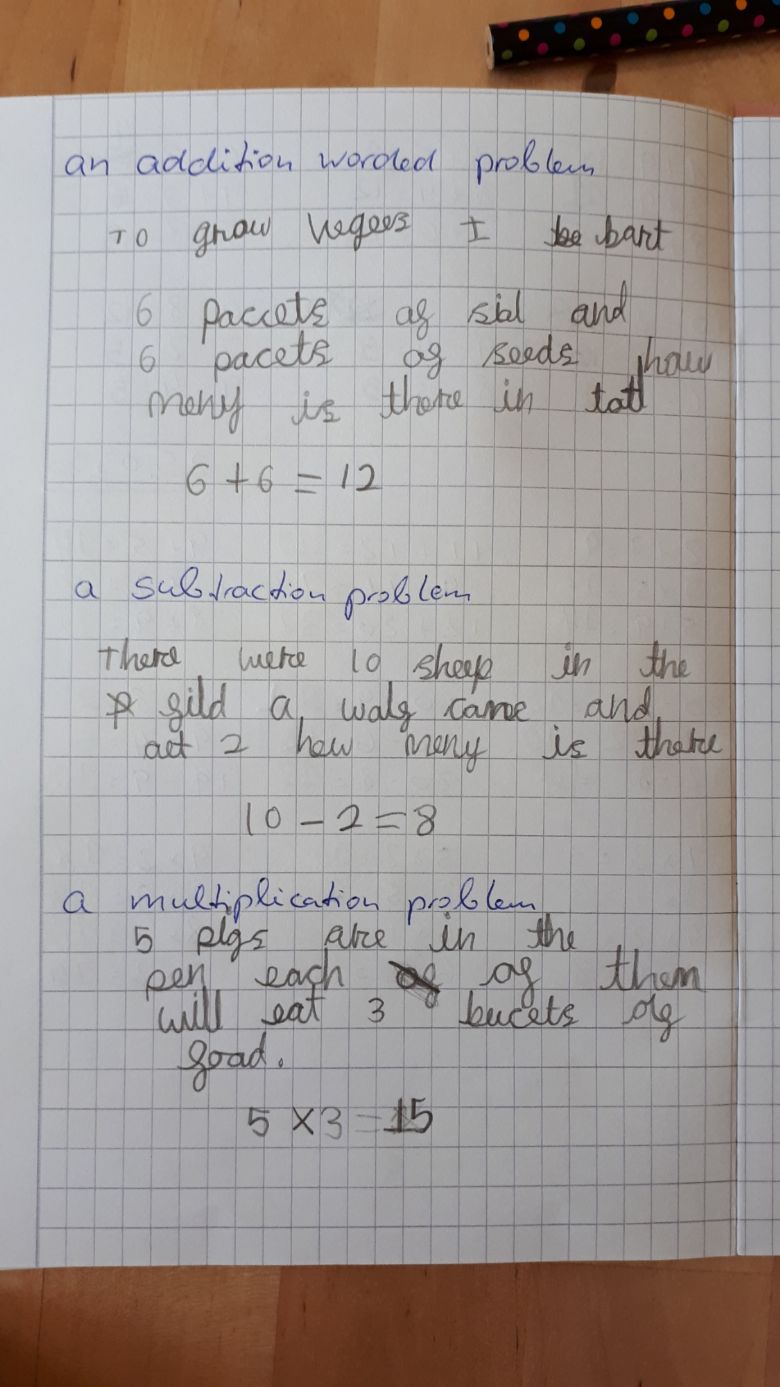 an addition worded problem
To grow vegees I be bart
6 paccets of sial and
6 pacets of seeds how
meny is there in tatl
6 + 6 = 12
a subtraction problem
There were 10 sheep in the
fild a walf came and
act 2 how meny is there
10 - 2 = 8
a multiplication problem
5 pigs are in the
pen each of them
will eat 3 bucets of
foad.
5 × 3 = 15